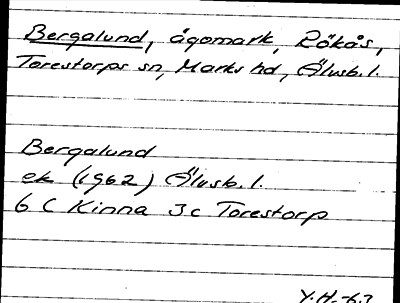 Bergalund, ägomark, Rökås,
Torestorps sn, Marks hd, Älvsb. l.
Bergalund
ek (1962) Älvsb. l.
6 C Kinna 3c Torestorp
Y.H. -63